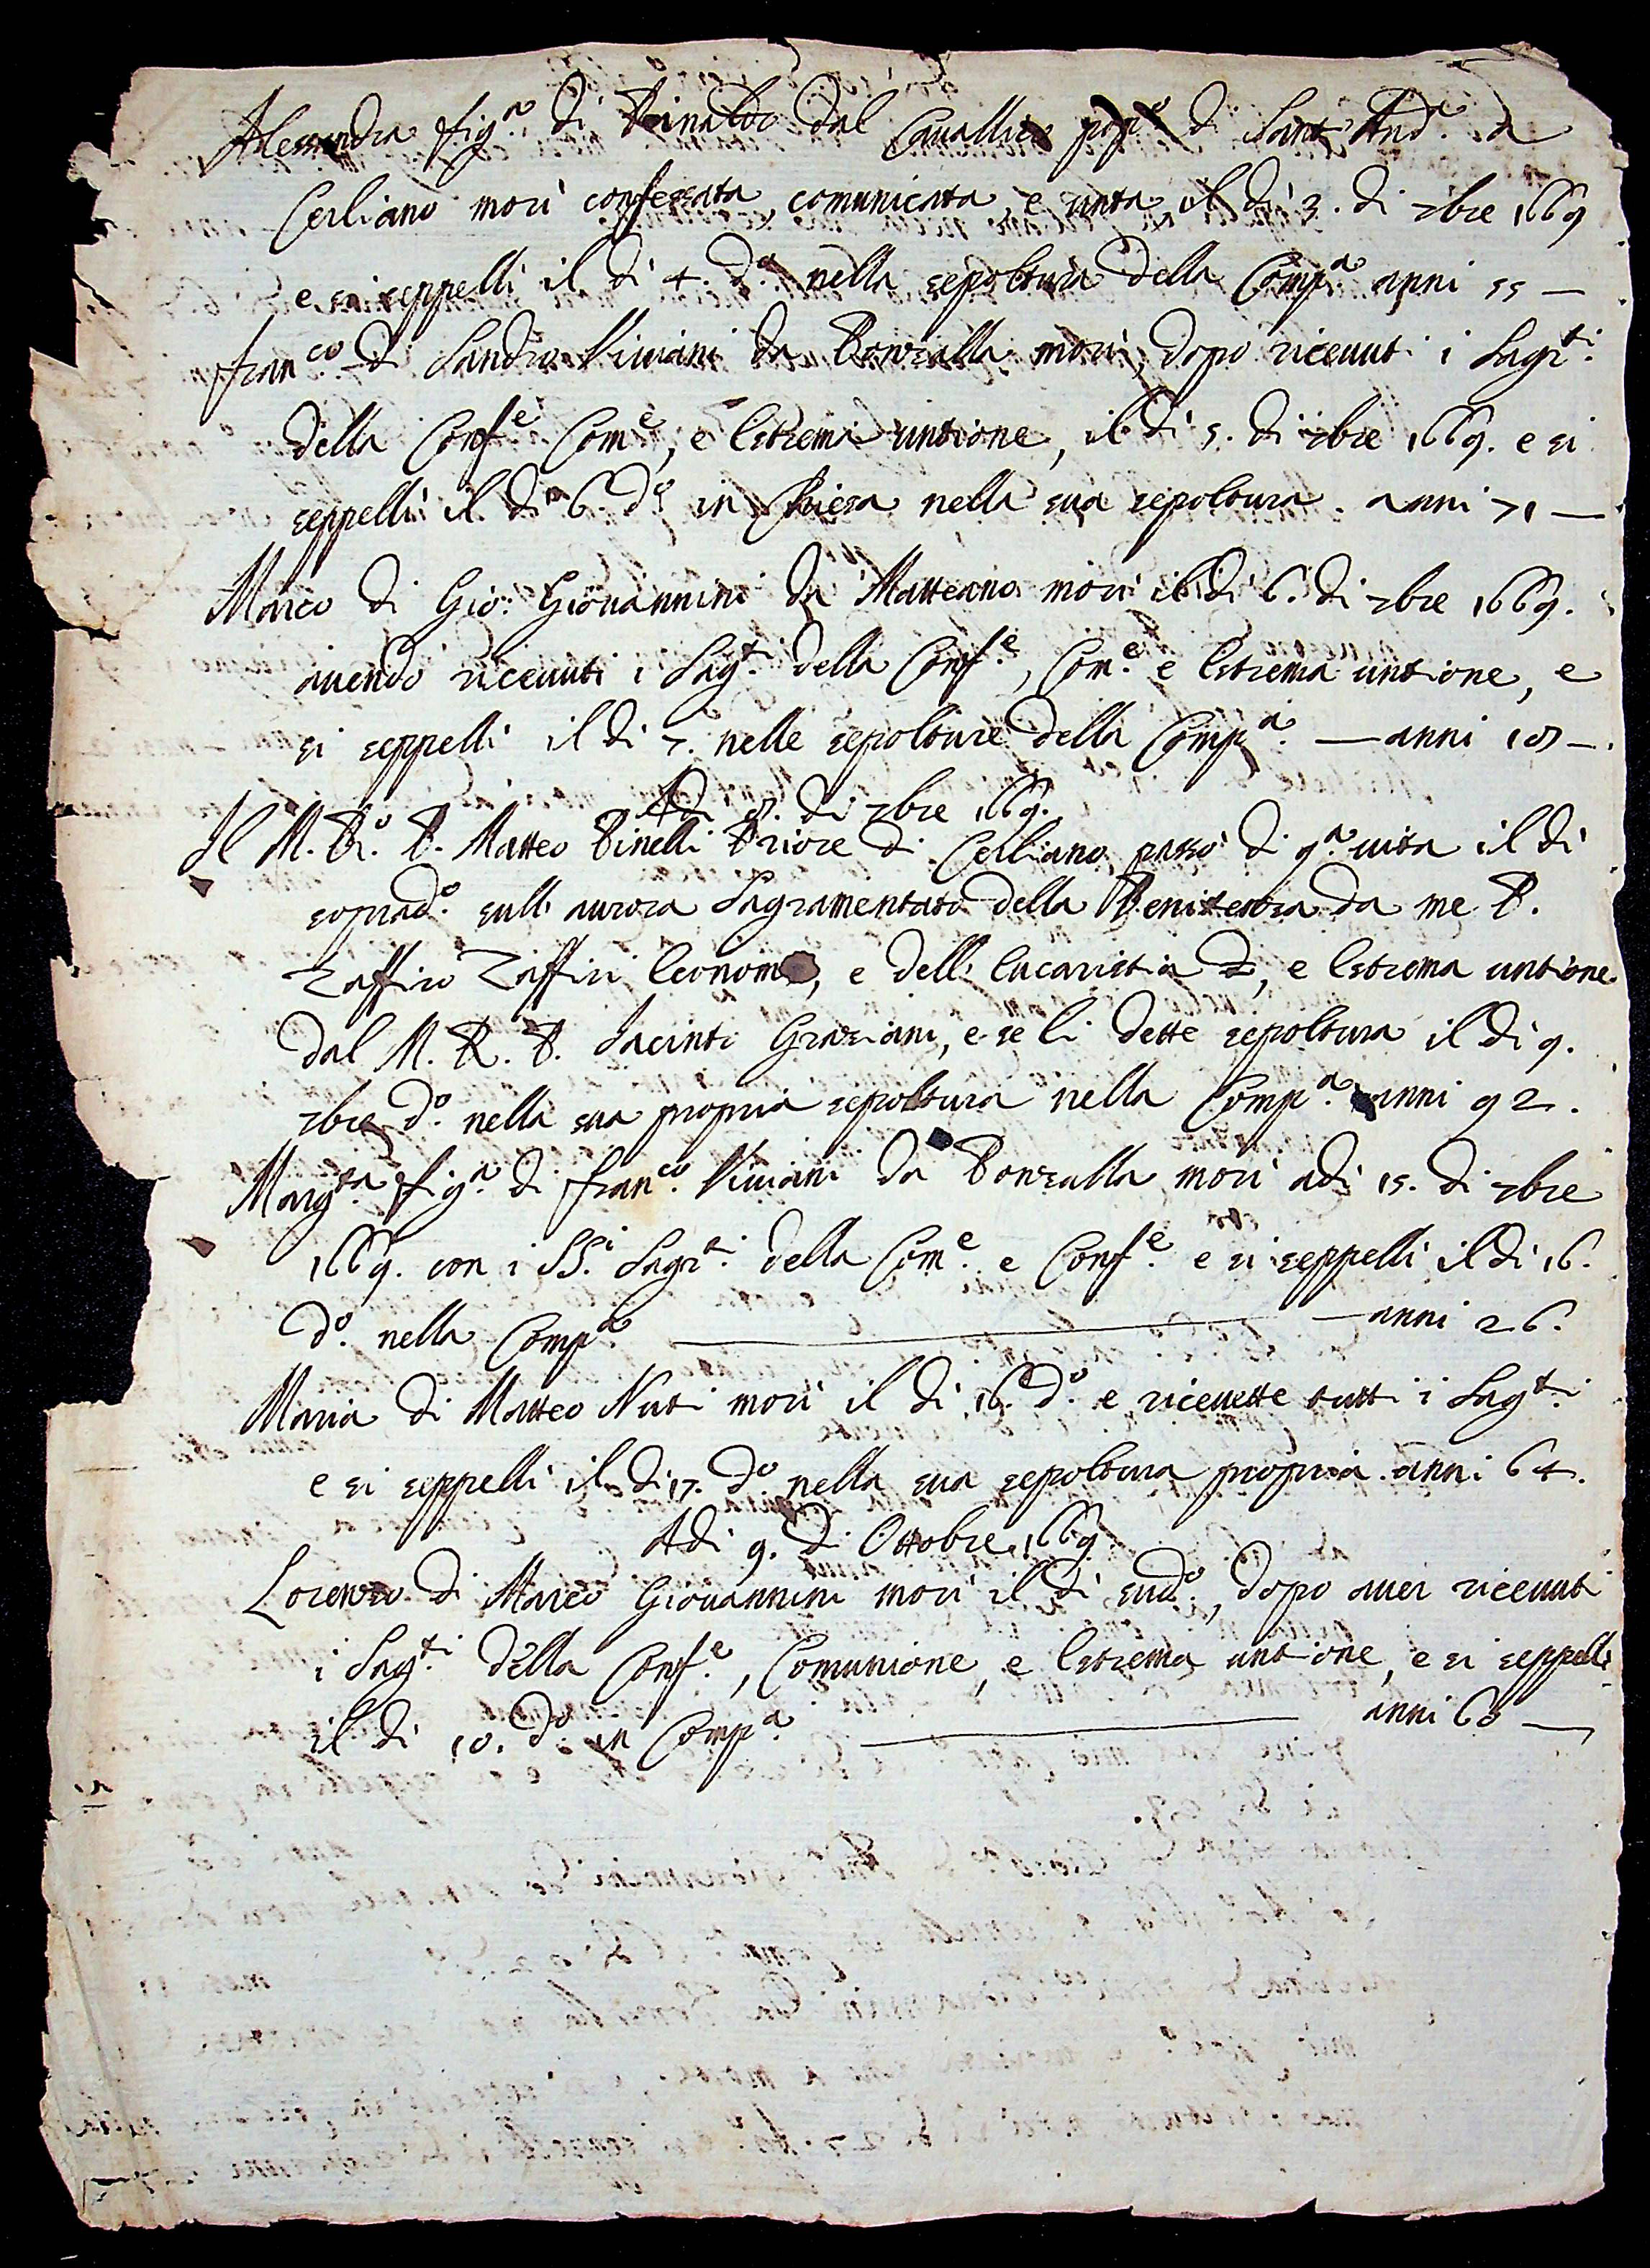 Alessandra fig.a di Rinaldo dal Cavallico pop.o di Sant'And.a a
Cerliano morì confessata comunicata e unta il dì 3. di 7bre 1669
e si seppellì il dì 4. d.o nella sepoltura della Comp.a anni 55 —
Fran.co di Sandro Viviani da Ponzalla morì, dopo ricevuti i Sagr.ti
della Conf.e Com.e, e Estrema untione, il dì 5. di 7bre 1669. e si
seppellì il dì 6. d.o in Chiesa nella sua sepoltura. anni 71 —
Marco di Gio: Giovannini da Matteano morì il dì 6. di 7bre 1669.
avendo ricevuti i Sag.ti della Conf.e, Com.e e Estrema untione, e
si seppellì il dì 7. nelle sepolture della Comp.a — anni 18 —.
Adì 8. di 7bre 1669.
Il M. R.o P. Matteo Pinelli Priore di Cerliano passò di q.a vita il dì
soprad.o sull'aurora Sagramentato della Penitenza da me P.
Zaffiro Zaffiri Economo, e dell'Eucaristia, e Estrema untione
dal M. R. P. Jacinto Graziani, e se li dette sepoltura il dì 9.
7bre d.o nella sua propria sepoltura nella Comp.a anni 92.
Marg.ta fig.a di Fran.co Viviani da Ponzalla morì adì 15. di 7bre
1669. con i SS.i Sagr.ti della Com.e e Conf.e e si seppellì il dì 16.
d.o nella Comp.a — anni 26.
Maria di Matteo Nuti morì il dì 16. d.o e ricevette tutti i Sag.ti
e si seppellì il dì 17. d.o nella sua sepoltura propria. anni 64.
Adì 9. di Ottobre 1669
Lorenzo di Marco Giovannini morì il dì sud.o, dopo aver ricevuti
i Sag.ti della Conf.e, Comunione, e Estrema untione, e si seppellì
il dì 10. d.o in Comp.a — anni 60 —